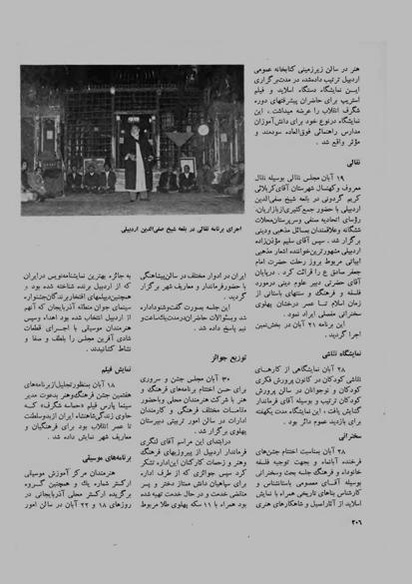 هنر در سالن زیرزمینی کتابخانه عمومی
اردبیل ترتیب داده شد، در مدت برگزاری
این نمایشگاه دستگاه اسلاید و فیلم
استریپ برای حاضران پیشرفتهای دوره
شگرف انقلاب را عرضه میداشت، این
نمایشگاه درنوع خود برای دانش‌آموزان
مدارس راهنمائی فوق‌العاده سودمند و
مؤثر واقع شد.
نقالی
۱۹ آبان مجلس نقالی بوسیله نقال
معروف و کهنسال شهرستان آقای کربلائی
کریم گردونی در بلعه شیخ صفی‌الدین
اردبیلی با حضور جمع کثیری از بازاریان،
رؤسای اتحادیه صنفی و سرپرستان محلات
ششگانه و علاقمندان بمسائل مذهبی و دینی
برگزار شد. سپس آقای سلیم مؤذن‌زاده
اردبیلی مشهورترین خواننده اشعار مذهبی
ابیاتی مربوط بروز رحلت حضرت امام
جعفر صادق ع را قرائت کرد. در پایان
آقای حضرتی دبیر علوم دینی در مورد
فلسفه و فرهنگ و سنتهای باستانی از
زمان اسلام تا عصر درخشان پهلوی
سخنرانی مفصلی ایراد نمود.
این برنامه ۲۱ آبان در بخش نمین
اجرا گردید.
نمایشگاه نقاشی
۲۸ آبان نمایشگاهی از کارهای
نقاشی کودکان در کانون پرورش فکری
کودکان و نوجوانان در سالن پرورش
کودکان ترتیب و بوسیله آقای فرماندار
گشایش یافت، این نمایشگاه مدت یکهفته
برای بازدید عموم دائر بود.
سخنرانی
۲۸ آبان بمناسبت اختتام جشن‌های
فرخنده آبانماه و بجهت توجیه فلسفه
خانواده و فرهنگ جلسه بحث و سخنرانی
بوسیله آقای معصومی باستانشناس و
کارشناس بناهای تاریخی همراه با نمایش
اسلاید از آثار اصیل و شاهکارهای هنری
۲۰۶
اجرای برنامه نقالی در بلعه شیخ صفی‌الدین اردبیلی
ایران در ادوار مختلف در سالن پیشاهنگی
با حضور فرماندار و معاریف شهر برگزار
گردید.
این جلسه بصورت گفت و شنود اداره
شد و بسئوالات حاضران درمدت یکساعت و
نیم پاسخ داده شد.
توزیع جوائز
۳۰ آبان مجلس جشن و سروری
برای حسن اختتام برنامه‌های فرهنگ و
هنر با شرکت هنرمندان محلی و با حضور
مقامات مختلف فرهنگی و کارمندان
ادارات در سالن امور تربیتی دبیرستان
پهلوی برگزار شد.
در ابتدای این مراسم آقای لنگری
فرماندار اردبیل از پیروزیهای فرهنگ
وهنر و زحمات کارکنان این اداره تشکر
کرد سپس جوائزی که از طرف اداره
برای سپاهیان دانش ممتاز دختر و پسر
منقضی خدمت و در حال خدمت تهیه شده
بود همراه با ۱۱ سکه پهلوی طلا مربوط
به جائزه بهترین نمایشنامه‌نویس در ایران
که از اردبیل برنده شناخته شده بود و
همچنین دیپلمهای افتخار برندگان جشنواره
سینمای جوان منطقه آذربایجان که آنهم
از اردبیل انتخاب شده بود اهداء و سپس
هنرمندان موسیقی با اجرای قطعات
شادی آفرین مجلس را بلطف و صفا و
نشاط کشانیدند.
نمایش فیلم
۱۸ آبان بمنظور تجلیل از برنامه‌های
هفتمین جشن فرهنگ و هنر بدعوت مدیر
سینما پارس فیلم «حماسه شگرف» که
حاوی زندگی شاهنشاه ایران از بدو سلطنت
تا عصر انقلاب بود برای فرهنگیان و
معاریف شهر نمایش داده شد.
برنامه‌های موسیقی
هنرمندان مرکز آموزش موسیقی
ارکستر شماره یک و همچنین گروه
برگزیده ارکستر محلی آذربایجانی در
روزهای ۱۸ و ۲۲ آبان در سالن امور